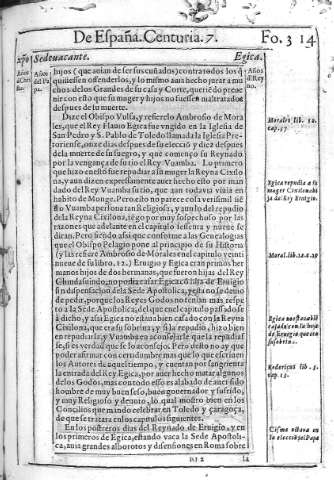 De España. Centuria. 7. Fo. 314
Sedevacante. Egica.
hijos (que avian de ser sus cuñados) contra todos los q̃
quisiessen ofenderlos, y lo mismo avia hecho jurar a mu
chos de los Grandes de su casa y Corte, queriẽdo pre
nir con esto que su muger y hijos no fuessen maltratados
despues de su muerte.
Dize el Obispo Vulsa, y refierelo Ambrosio de Mora
les, que el Rey Flavio Egica fue vngido en la Iglesia de
San Pedro y S. Pablo de Toledo llamada la Iglesia Pre
toriense, onze dias despues de su elecciõ y diez despues
dela muerte de su suegro, y que començo su Reynado
por la vengança de su tio el Rey Vuamba. Lo primero
que hizo en esto fue repudiar a su muger la Reyna Cixilo
na, y aun dizen expressamente aver hecho esto por man
dado del Rey Vuamba su tio, que aun todavia vivia en
habito de Monge. Pero esto no parece cosa verisimil siẽ
do Vuamba persona tan Religiosa, y en lo del repudio
dela Reyna Cixilona, tẽgo por muy sospechoso por las
razones que adelante en el capitulo sesenta y nueve se
diran. Pero siendo assi que conforme a las Genealogias
que el Obispo Pelagio pone al principio de su Historia
(y las refiere Ambrosio de Morales en el capitulo veinti
nueve de su libro. 12.) Ervigio y Egica eran primos her
manos hijos de dos hermanas, que fueron hijas del Rey
Chindasuindo, no podia casar Egica cõ hija de Ervigio
sin dispensacion dela Sede Apostolica, y esta no se devio
de pedir, porque los Reyes Godos no tenian mas respe
to a la Sede Apostolica, del que en el capitulo passado se
à dicho, y assi Egica no estava bien casado con la Reyna
Cixilona, que era su sobrina, y si la repudiò, hizo bien
en repudiarla, y Vuamba en aconsejarle que la repudias
se, si es verdad que se lo aconsejò. Pero desto no ay que
poder afirmar con certidumbre mas que lo que escriven
los Autores de aquel tiempo, y cuentan por sangrienta
la entrada del Rey Egica, por aver hecho matar algunos
de los Godos, mas con todo esso es alabado de aver sido
hombre de muy buen seso, buen governador y sufrido,
y muy Religioso y devoto, lo qual mostrò bien en los
Concilios que mando celebrar en Toledo y Çaragoça,
de que se tratara en los capitulos siguientes.
En los postreros dias del Reynado de Ervigio, y en
los primeros de Egica, estando vaca la Sede Apostoli
ca, avia grandes alborotos y disensiones en Roma sobre
la
Morales lib. 12.
cap. 57
Egica repudia a su
muger Cixilona hi
ja de Rey Ervigio.
Moral. lib. 12. c. 29
Egica no estava biẽ
casado con la hija
de Ervigio que era
su sobrina.
Rodericus lib. 3.
cap. 13.